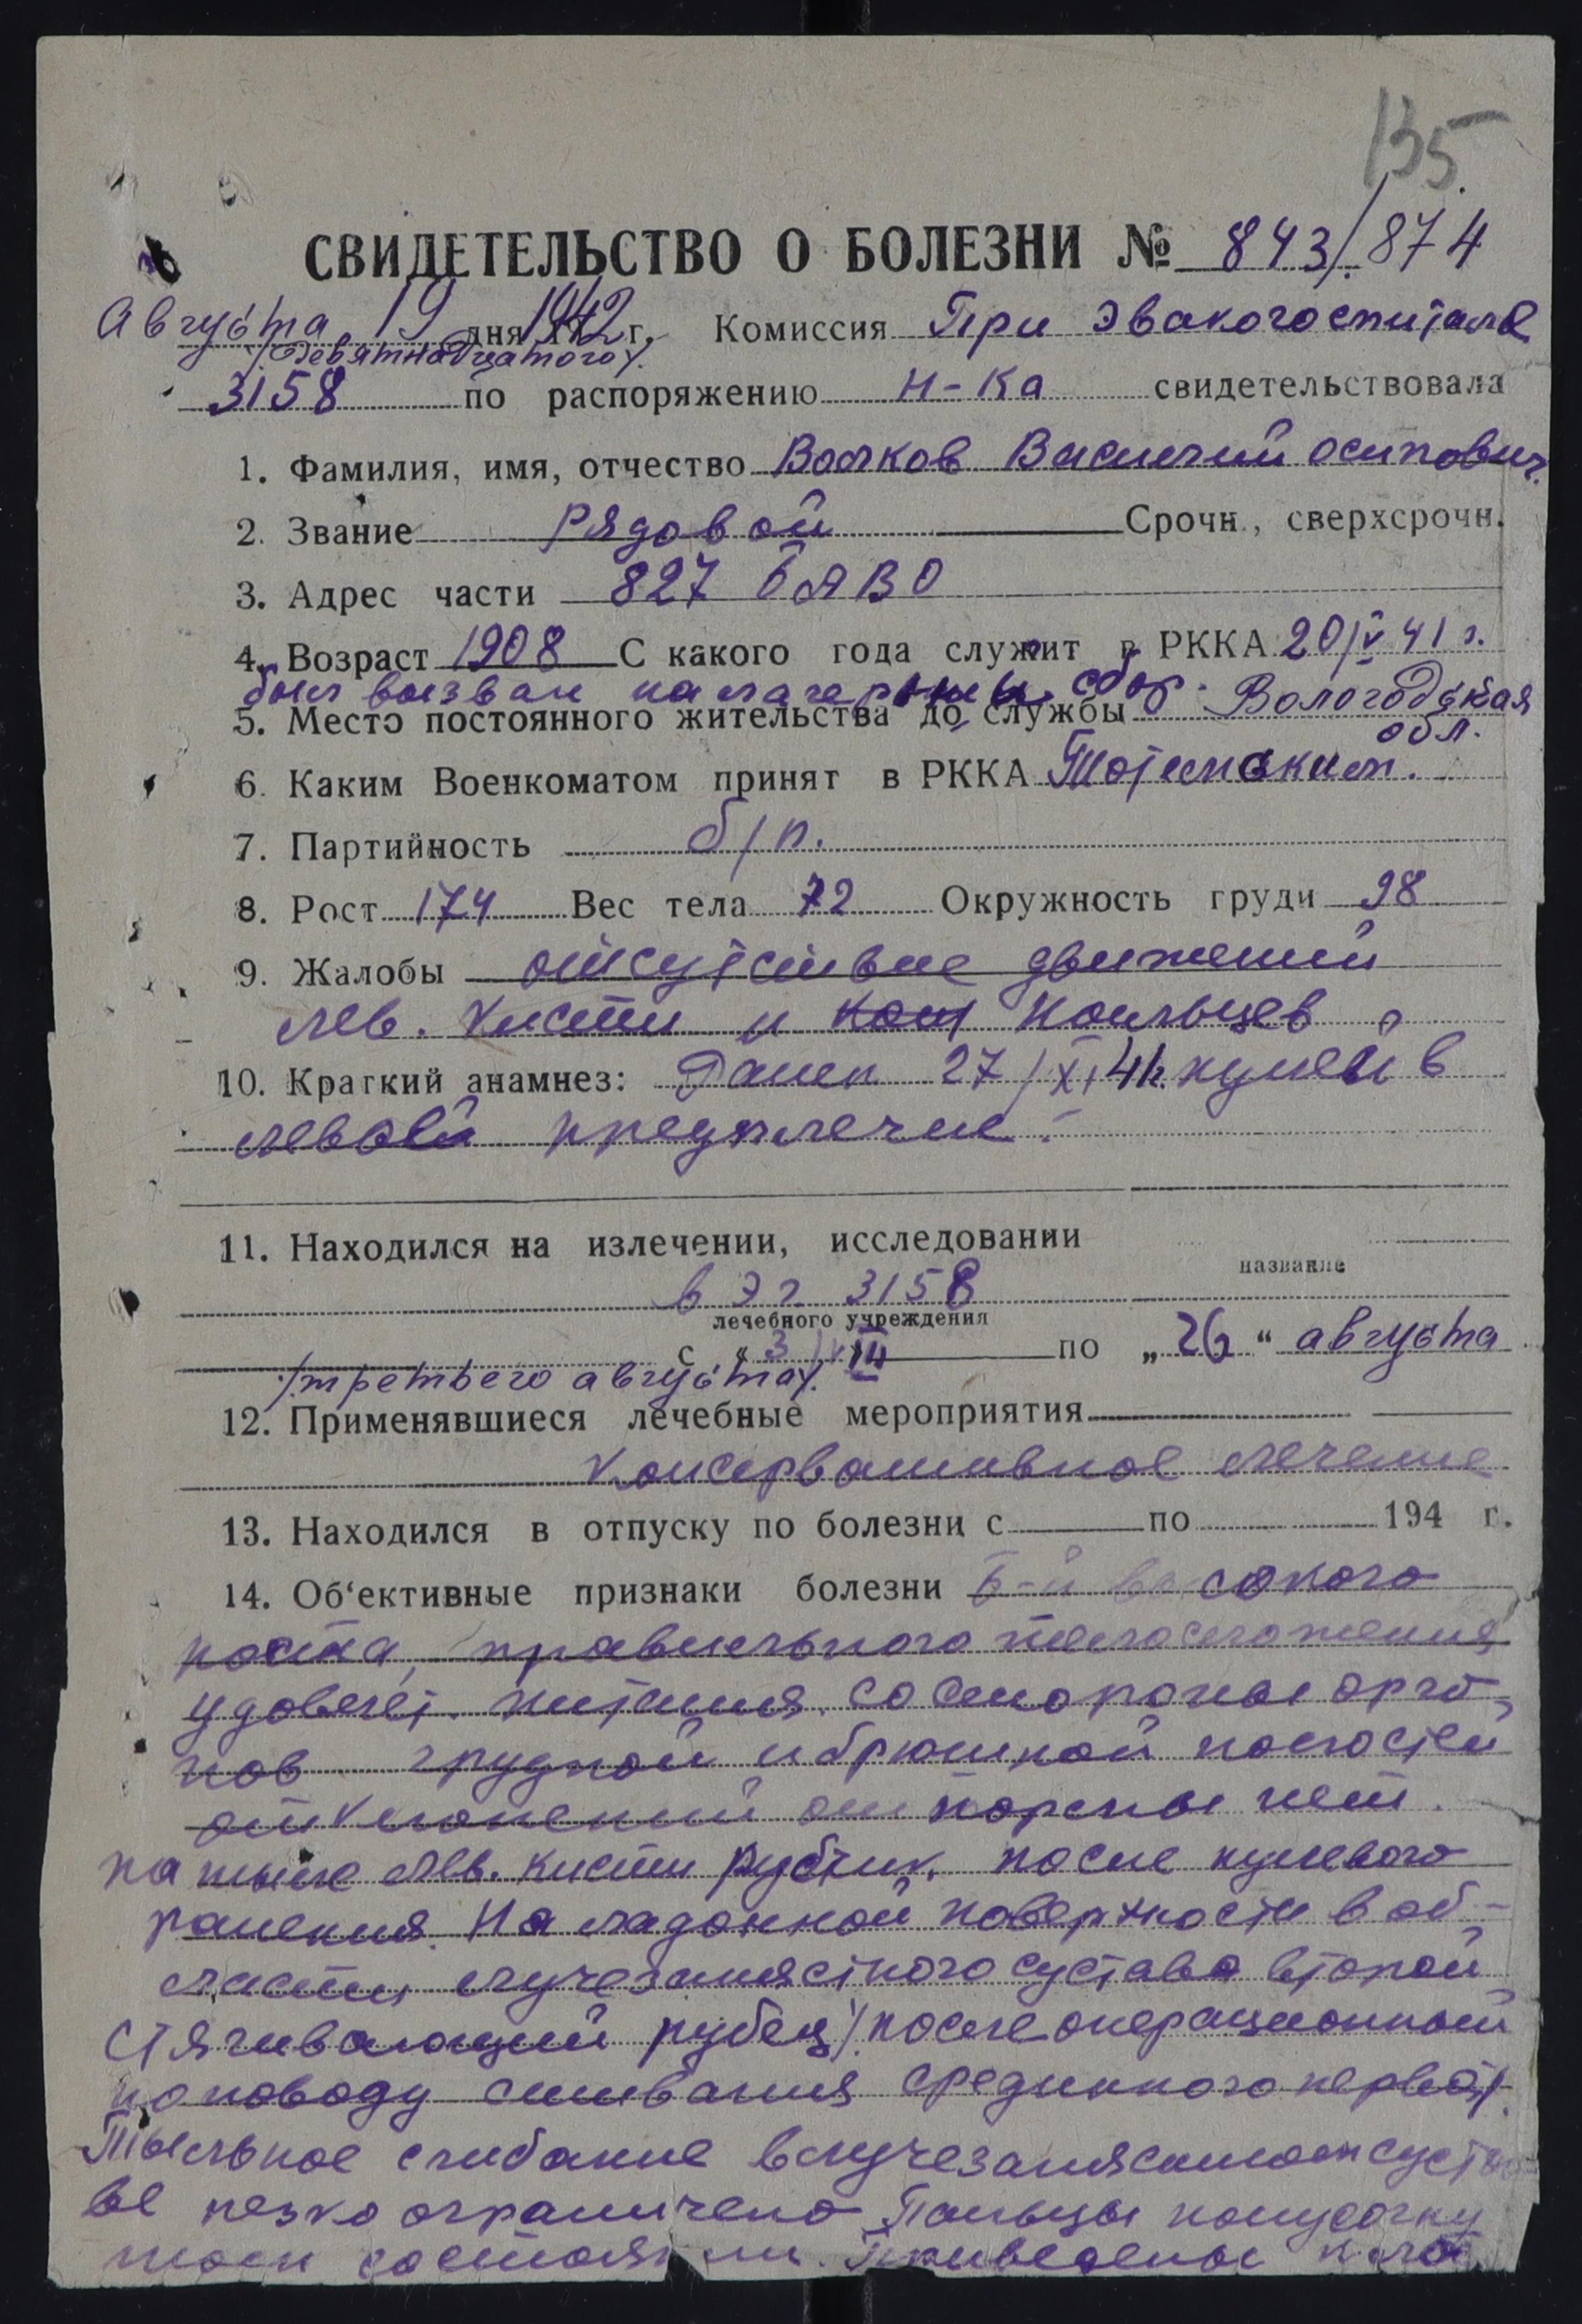 135
СВИДЕТЕЛЬСТВО О БОЛЕЗНИ № 843/874
Августа 19 дня 1942 г. Комиссия При эвакогоспитале
/Девятнадцатого/.
3158 по распоряжению Н-ка свидетельствовала
1. Фамилия, имя, отчество Волков Василий Осипович.
2. Звание рядовой Срочн., сверхсрочн.
3. Адрес части 827 БАВО
4. Возраст 1908 С какого года служит в РККА 20/V 41 г.
был вызван на лагерный сбор.
5. Место постоянного жительства до службы Вологодская
обл.
6. Каким Военкоматом принят в РККА Тотемским.
7. Партийность б/п.
8. Рост 174 Вес тела 72 Окружность груди 98
9. Жалобы отсутствие движений
лев. кисти и пальцев
10. Краткий анамнез: Ранен 27/XI 41г. пулей в
левой предплечие.
11. Находился на излечении, исследовании
название
в ЭГ 3158
лечебного учреждения
с „3/VIII по „26“ августа
/третьего августа/.
12. Применявшиеся лечебные мероприятия
Консервативное лечение
13. Находился в отпуску по болезни с по 194 г.
14. Об‘ективные признаки болезни Б-й высокого
роста, правильного телосложения,
удовлет. питания. Со стороны орга-
нов грудной и брюшной полостей
отклонений от нормы нет.
На тыле лев. кисти рубчик, после пулевого
ранения. На ладонной поверхности в об-
ласти лучезапястного сустава второй
стягивающий рубец /послеоперационный
по поводу сшивания срединного нерва/.
Тыльное сгибание в лучезапястном суста-
ве резко ограничено. Пальцы полусогну
том состоянии. Приведены